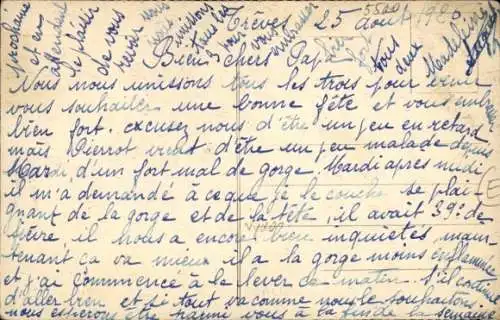 Trèves, 25 aout 1920.
Bien chers Papa
Nous nous unissons tous les trois pour venir
vous souhaiter une bonne fête et vous
bien fort. excusez nous d'être un peu en retard
mais Pierrot vient d'être un peu malade depuis
Mardi, d'un fort mal de gorge. Mardi après midi
il m'a demandé à ce que je le couche se plai
gnant de la gorge et de la tête, il avait 39° de
fièvre, il nous a encore bien inquietés, main
tenant ça va mieux il a la gorge moins enflammée
et j'ai commencé à le lever ce matin. S'il continue
d'aller bien et si tout va comme nous le souhaitons.
nous esperons être parmi vous à la fin de la semaine
prochaine
et en
attendant
le plaisir
de vous
revoir nous
nous
unissons
tous les
pour
vous
embrasser
bien
fort
tous
deux
Madeleine
5500